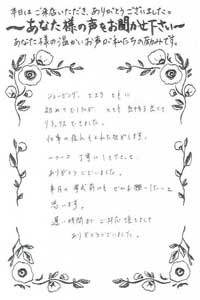 本日はご来店いただき、ありがとうございました。
〜あなた様の声をお聞かせ下さい〜
あなた様の温かいお声が私たちの励みです。
シェービング、エステ ともに
初めてでしたが、とても 気持ち良くて
リラックスできました。
仕事の疲れもとれた気がします。
一つ一つ 丁寧にして下さって
ありがとうございました。
来月の挙式前にも ぜひお願いしたいと
思います。
遅い時間まで ご対応頂きまして
ありがとうございました。